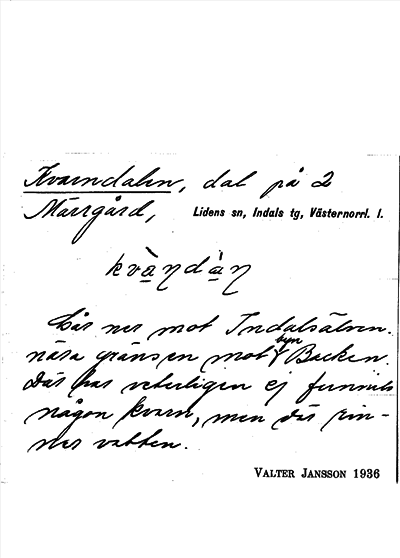 Kvarndalen, dal på 2
Märrgård, Lidens sn, Indals tg, Västernorrl. l.
kvàṇdàṇ
Går ner mot Indalsälven
nära gränsen mot byn Backen.
Där har veterligen ej funnits
någon kvarn, men där rin-
ner vatten.
VALTER JANSSON 1936